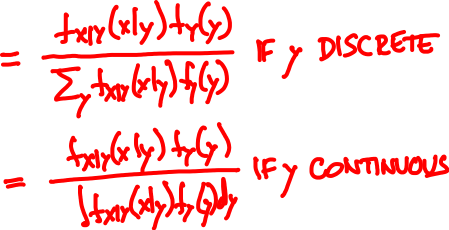 = f_{X|Y}(x|y) f_Y(y) / Σ_y f_{X|Y}(x|y) f_Y(y) IF y DISCRETE
= f_{X|Y}(x|y) f_Y(y) / ∫ f_{X|Y}(x|y) f_Y(y) dy IF y CONTINUOUS